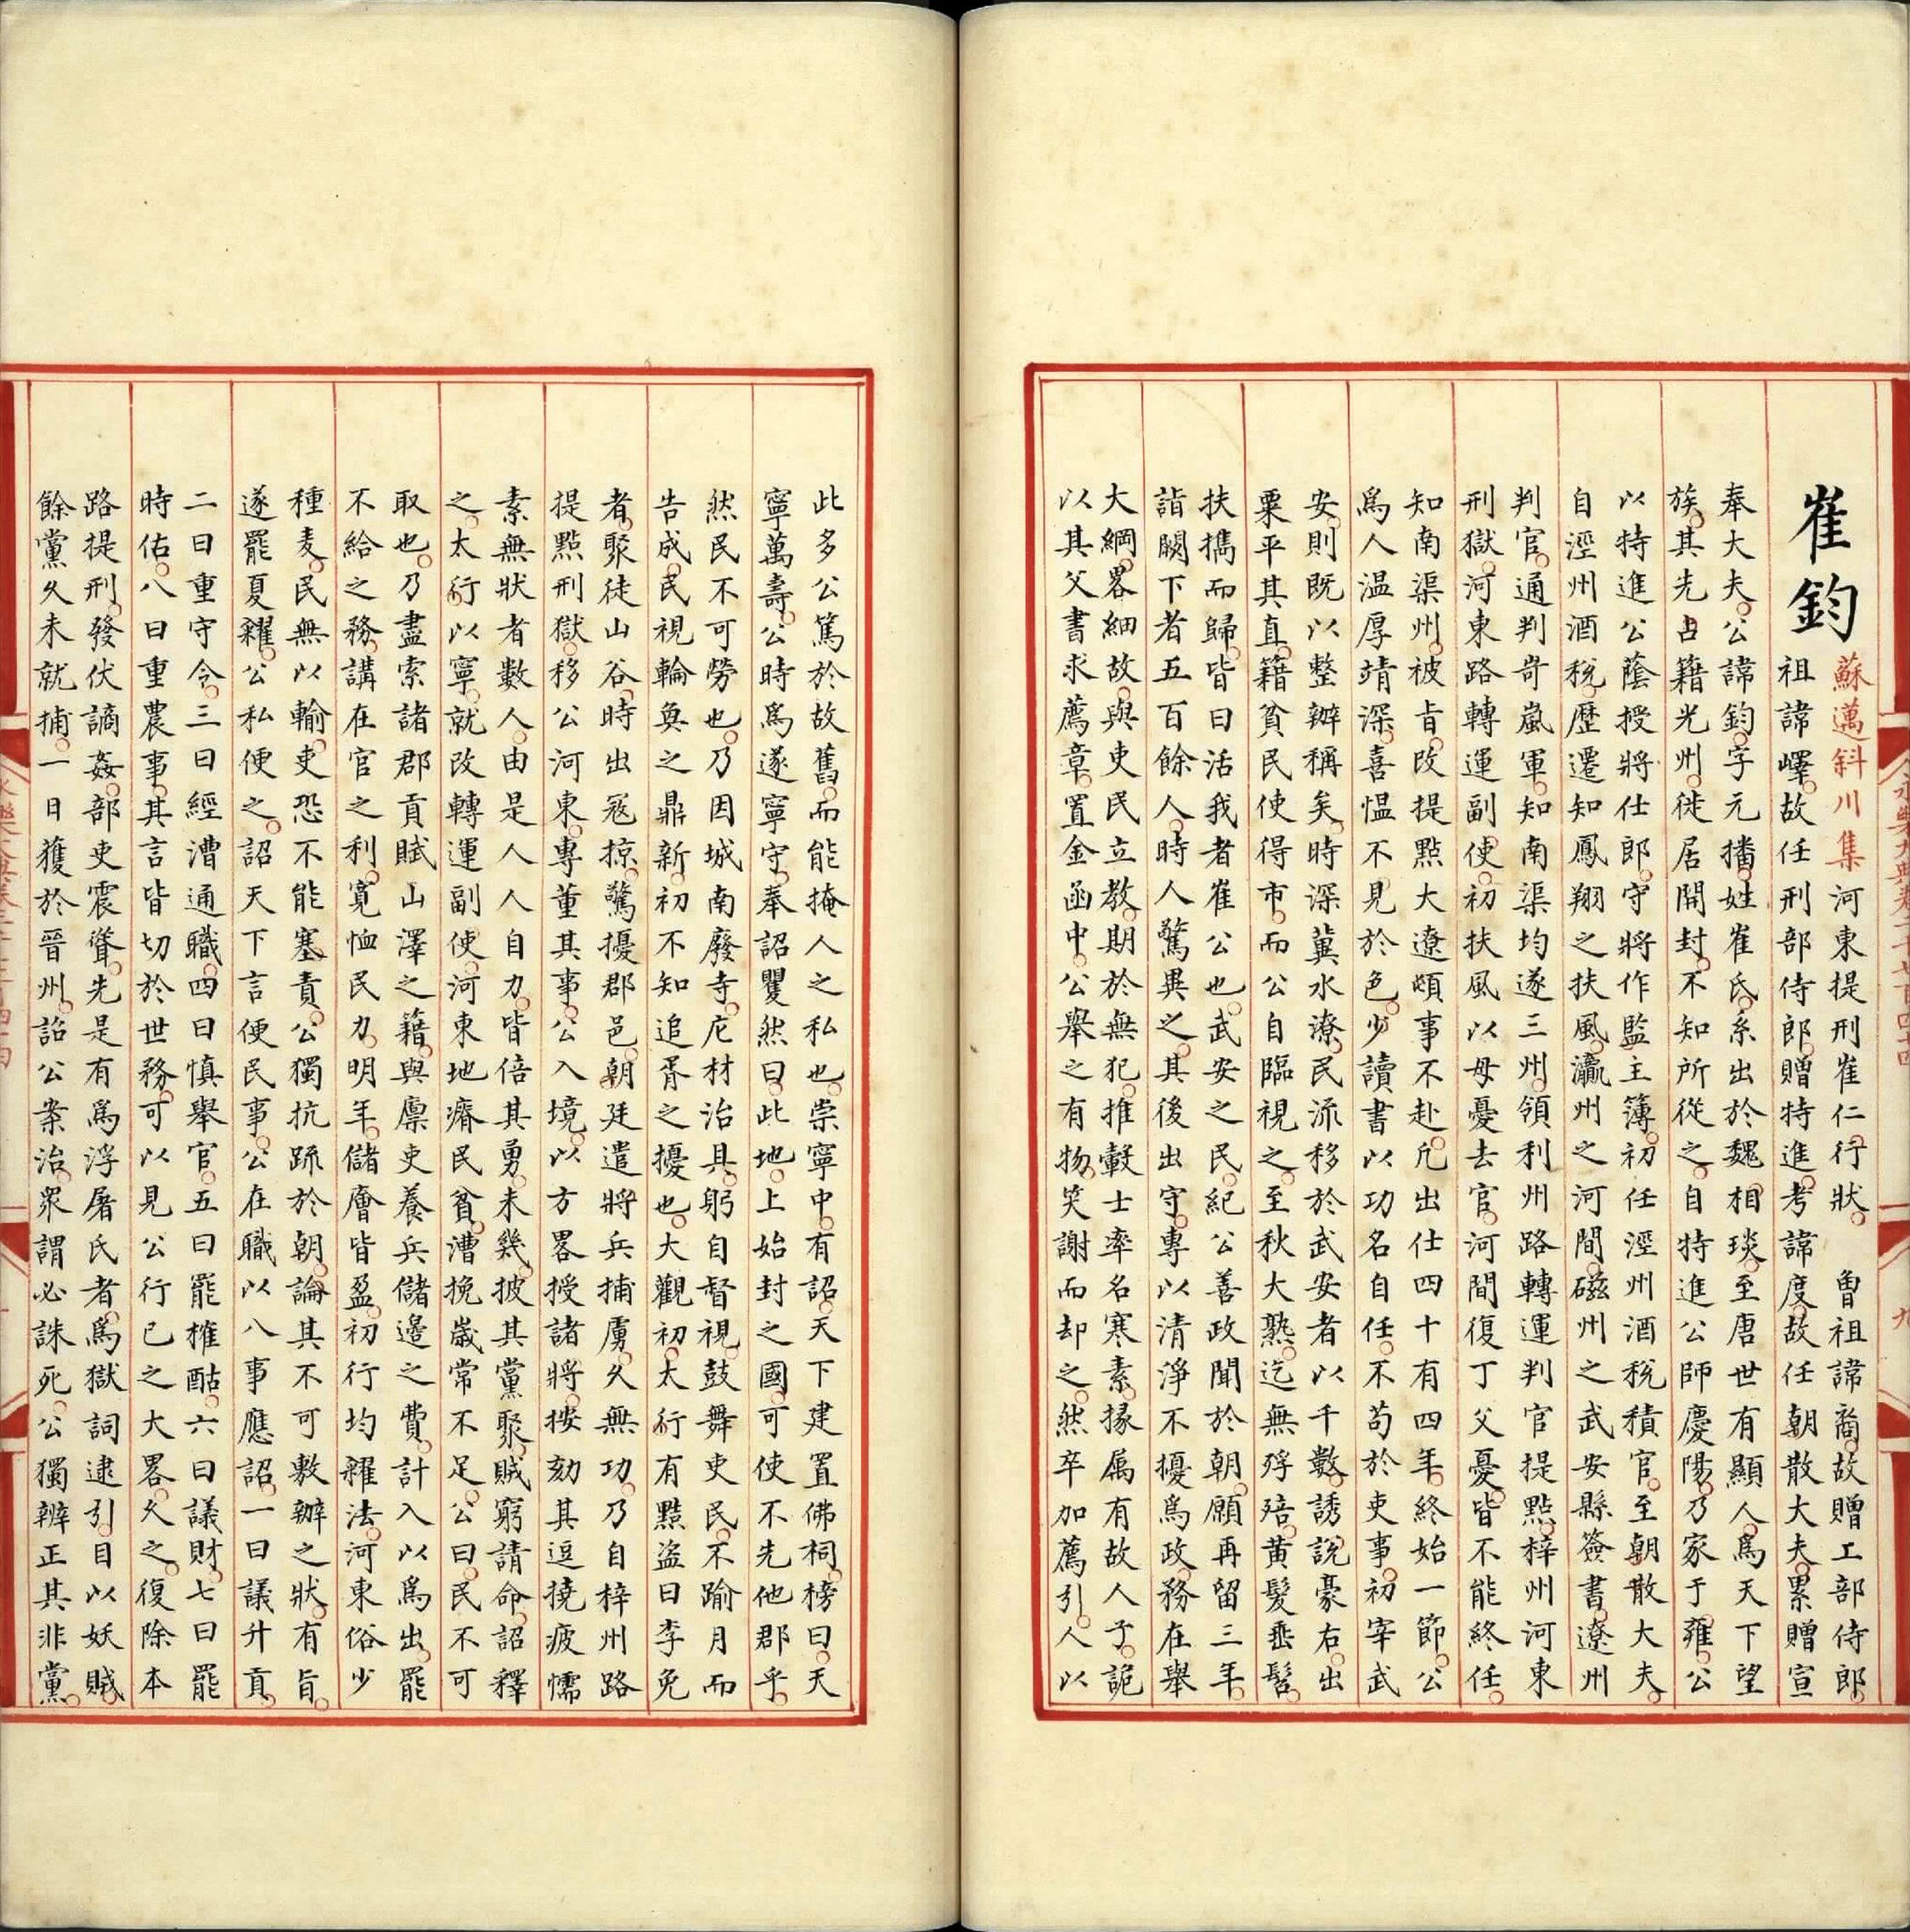 崔鈞
蘇邁斜川集河東提刑崔仁行狀 曾祖諱裔故贈工部侍郎
祖諱嶧故任刑部侍郎贈特進考諱度故任朝散大夫累贈宣
奉大夫公諱鈞字元播姓崔氏系出於魏相琰至唐世有顯人爲天下望
族其先占籍光州徙居開封不知所從之自特進公師慶陽乃家于雍公
以特進公蔭授將仕郎守將作監主簿初任涇州酒稅積官至朝散大夫
自涇州酒稅歷遷知鳳翔之扶風瀛州之河間磁州之武安縣簽書遼州
判官通判岢嵐軍知南渠均遂三州領利州路轉運判官提點梓州河東
刑獄河東路轉運副使初扶風以母憂去官河間復丁父憂皆不能終任
知南渠州被旨改提點大遼頓事不赴凡出仕四十有四年終始一節公
爲人温厚靖深喜愠不見於色少讀書以功名自任不苟於吏事初宰武
安則既以整辦稱矣時深冀水潦民流移於武安者以千數誘說豪右出
粟平其直籍貧民使得市而公自臨視之至秋大熟迄無殍殕黄髮垂髫
扶攜而歸皆曰活我者崔公也武安之民紀公善政聞於朝願再留三年
詣闕下者五百餘人時人驚異之其後出守專以清淨不擾爲政務在舉
大綱畧細故與吏民立教期於無犯推轂士率名寒素掾属有故人子詭
以其父書求薦章置金函中公舉之有物笑謝而却之然卒加薦引人以
此多公篤於故舊而能掩人之私也崇寧中有詔天下建置佛祠榜曰天
寧萬壽公時爲遂寧守奉詔矍然曰此地上始封之國可使不先他郡乎
然民不可勞也乃因城南廢寺庀材治具躬自督視鼓舞吏民不踰月而
告成民視輪奐之鼎新初不知追胥之擾也大觀初太行有黠盜曰李免
者聚徒山谷時出冦掠驚擾郡邑朝廷遣將兵捕虜久無功乃自梓州路
提點刑獄移公河東專董其事公入境以方畧授諸將按劾其逗撓疲懦
素無狀者數人由是人人自力皆倍其勇未幾披其黨聚賊窮請命詔釋
之太行以寧就改轉運副使河東地瘠民貧漕挽歲常不足公曰民不可
取也乃盡索諸郡貢賦山澤之籍與廪吏養兵儲邊之費計入以爲出罷
不給之務講在官之利寬恤民力明年儲廥皆盈初行均糴法河東俗少
種麦民無以輸吏恐不能塞責公獨抗䟽於朝論其不可敷辦之狀有旨
遂罷夏糴公私便之詔天下言便民事公在職以八事應詔一曰議升貢
二曰重守令三曰經漕通職四曰慎舉官五曰罷榷酤六曰議財七曰罷
時估八曰重農事其言皆切於世務可以見公行已之大畧久之復除本
路提刑發伏謫姦部吏震聳先是有爲浮屠氏者爲獄詞逮引目以妖賊
餘黨久未就捕一日獲於晉州詔公案治衆謂必誅死公獨辨正其非黨